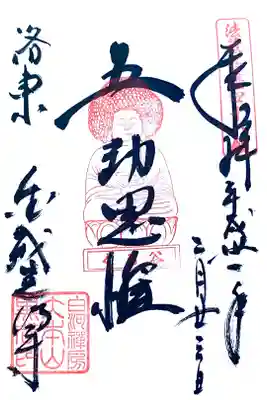 奉拝 平成 一年
三月廿 日
五劫思惟
洛東
金戒光明寺
白河禅房
大本山